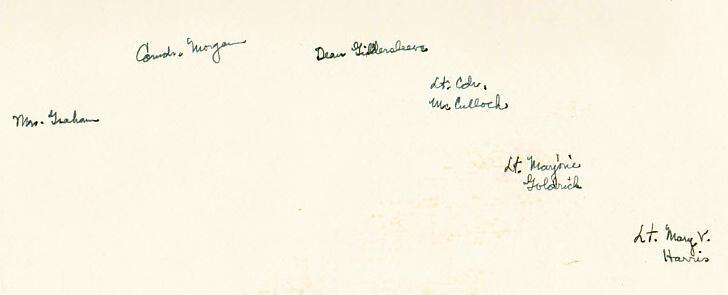 Comdr. Morgan
Dean Gildersleeve
Lt. Cdr.
McCulloch
Mrs. Graham
Lt. Marjorie
Goldrick
Lt. Mary V.
Harris